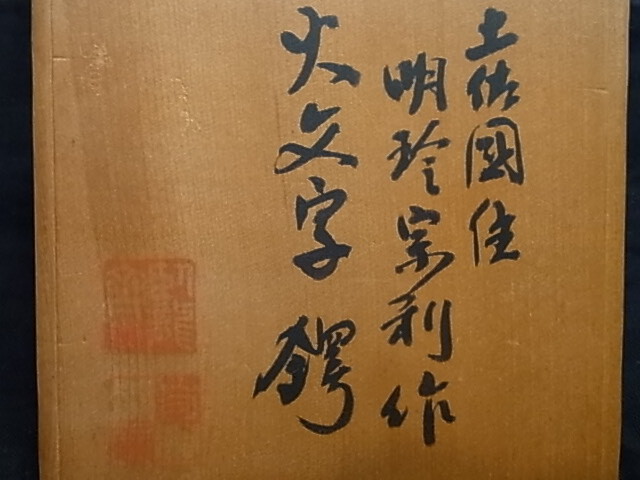 土佐國住
明珍宗利作
火文字 鍔